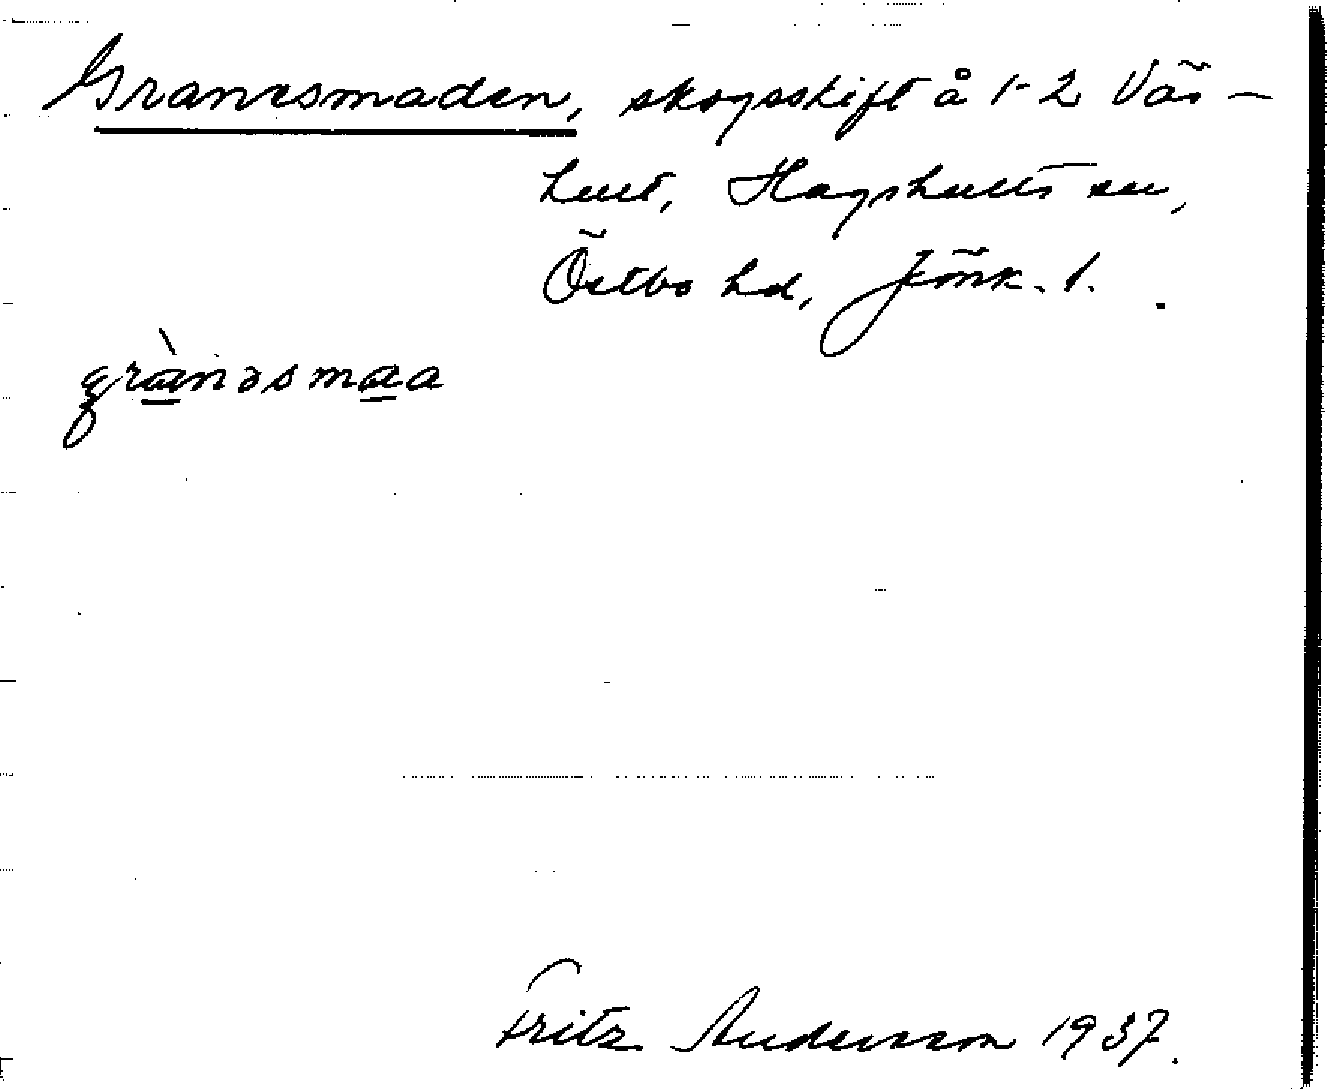 Granesmaden, skogsskift å 1-2 Väs-
hult, Hagshults sn,
Östbo hd, Jönk. l.
grànəsmaa
Fritz Andersson 1937.